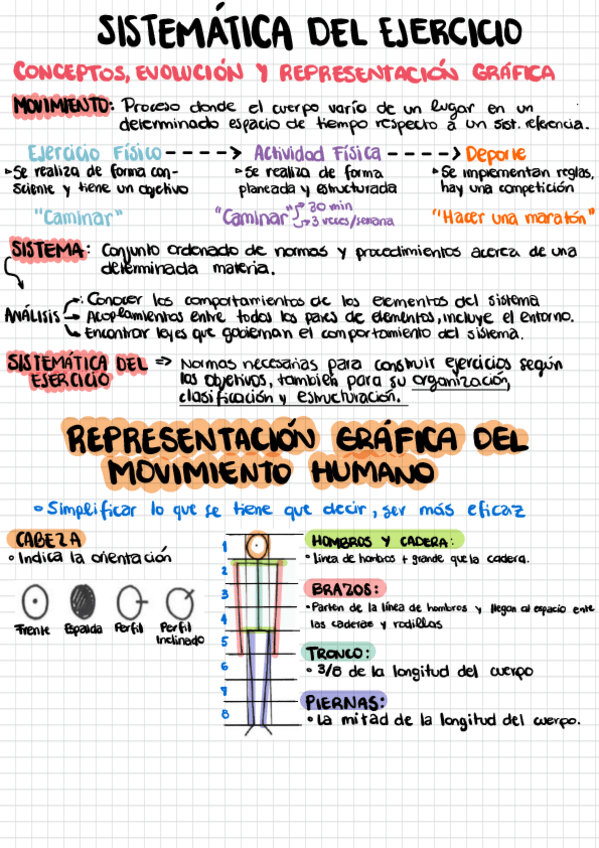 SISTEMÁTICA DEL EJERCICIO
CONCEPTOS, EVOLUCIÓN Y REPRESENTACIÓN GRÁFICA
MOVIMIENTO: Proceso donde el cuerpo varía de un lugar en un
determinado espacio de tiempo respecto a un sist. referencia.
Ejercicio Físico ----> Actividad Física ----> Deporte
▸Se realiza de forma con-
sciente y tiene un objetivo
▸Se realiza de forma
planeada y estructurada
▸Se implementan reglas,
hay una competición
"Caminar"
"Caminar" 30 min
3 veces/semana
"Hacer una maratón"
SISTEMA: Conjunto ordenado de normas y procedimientos acerca de una
determinada materia.
ANÁLISIS
Conocer los comportamientos de los elementos del sistema
Acoplamientos entre todos los pares de elementos, incluye el entorno.
Encontrar leyes que gobiernan el comportamiento del sistema.
SISTEMÁTICA DEL
EJERCICIO
=> Normas necesarias para construir ejercicios según
los objetivos, también para su organización,
clasificación y estructuración.
REPRESENTACIÓN GRÁFICA DEL
MOVIMIENTO HUMANO
• Simplificar lo que se tiene que decir, ser más eficaz
CABEZA
• Indica la orientación
Frente Espalda Perfil Perfil
Inclinado
1
2
3
4
5
6
7
8
HOMBROS Y CADERA:
• Línea de hombros + grande que la cadera.
BRAZOS:
• Parten de la línea de hombros y llegan al espacio ente
las caderas y rodillas
TRONCO:
• 3/8 de la longitud del cuerpo
PIERNAS:
• La mitad de la longitud del cuerpo.